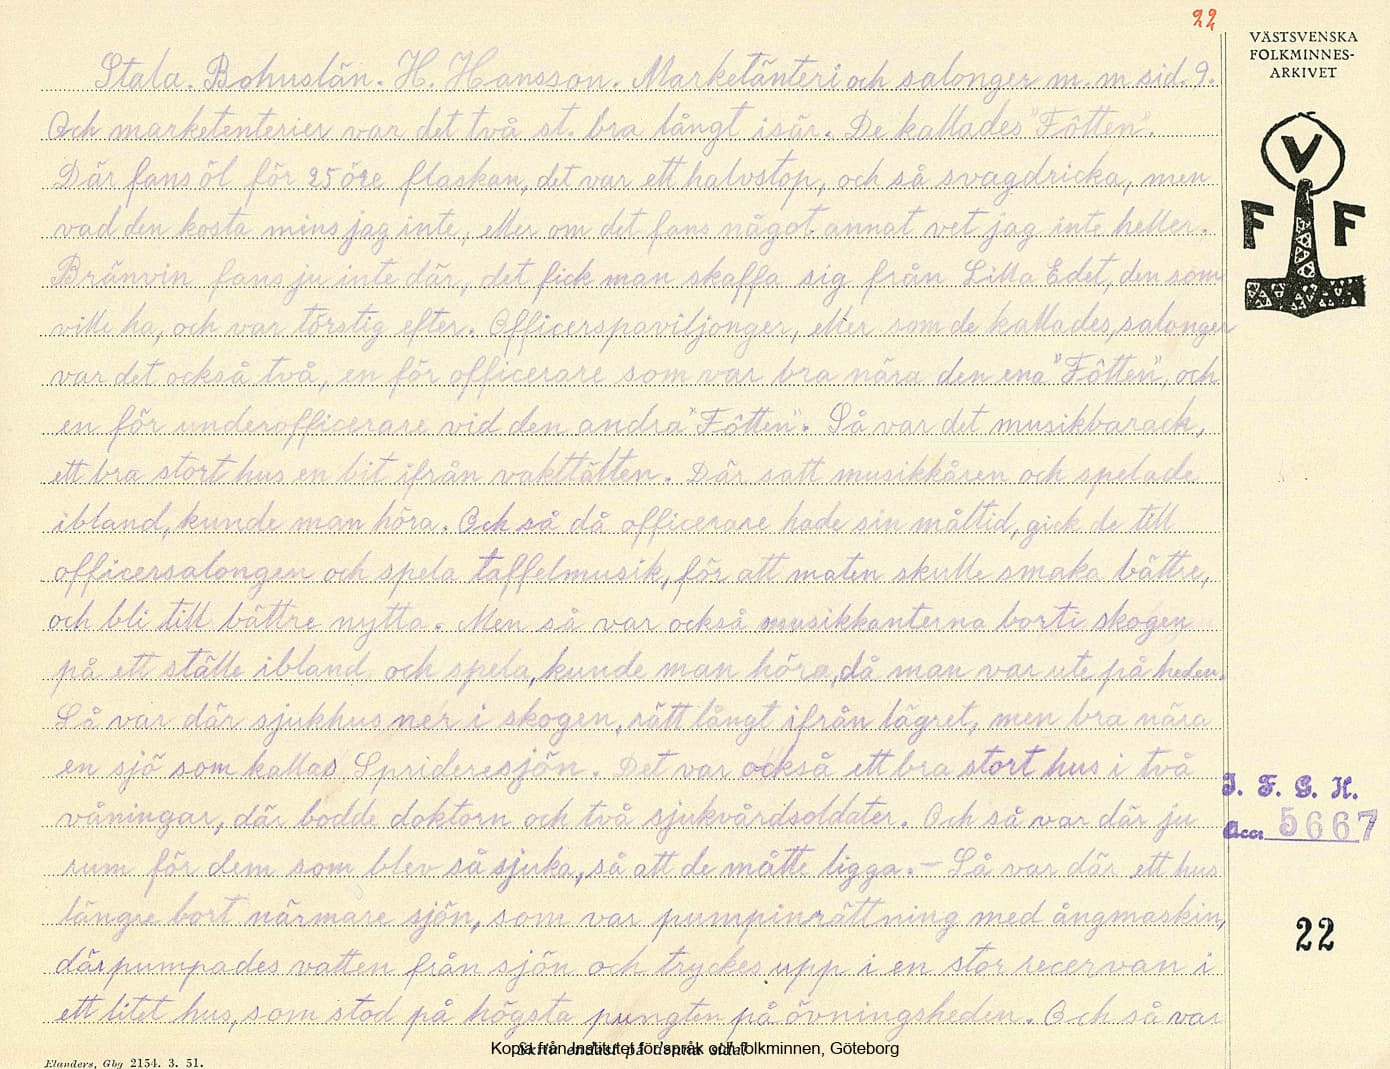 22
VÄSTSVENSKA
FOLKMINNES-
ARKIVET
V
F F
Stala. Bohuslän. H. Hansson. Marketänteri och salonger m. m sid. 9.
Och marketenterier var det två st. bra långt isär. De kallades "Fôtten".
Där fans öl för 25 öre flaskan, det var ett halvstop, och så svagdricka, men
vad den kosta mins jag inte, eller om det fans något annat vet jag inte heller.
Bränvin fans ju inte där, det fick man skaffa sig från Lilla Edet, den som
ville ha, och var törstig efter. Officerspaviljonger, eller som de kallades, salonger
var det också två, en för officerare som var bra nära den ena "Fôtten", och
en för underofficerare vid den andra "Fôtten". Så var det musikbarack,
ett bra stort hus en bit ifrån vakttälten. Där satt musikkåren och spelade
ibland, kunde man höra. Och så då officerare hade sin måltid, gick de till
officersalongen och spela taffelmusik, för att maten skulle smaka bättre,
och bli till bättre nytta. Men så var också musikkanterna borti skogen
på ett ställe ibland och spela, kunde man höra, då man var ute på heden.
Så var där sjukhus ner i skogen, rätt långt ifrån lägret, men bra nära
en sjö som kallas Sprideresjön. Det var också ett bra stort hus i två
våningar, där bodde doktorn och två sjukvårdsoldater. Och så var där ju
rum för dem som blev så sjuka, så att de måtte ligga. – Så var där ett hus
längre bort närmare sjön, som var pumpinrättning med ångmaskin,
där pumpades vatten från sjön och tryckes upp i en stor recervan i
ett litet hus, som stod på högsta pungten på övningsheden. Och så var
I. F. G. H.
Acc. 5667
22
Skriv endast på denna sida!
Kopia från Institutet för språk och folkminnen, Göteborg
Elanders, Gbg 2154. 3. 51.